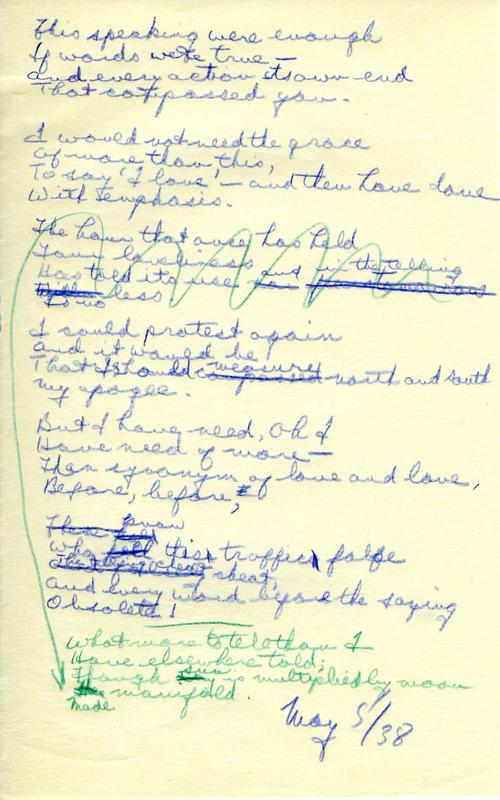 This speaking were enough
If words were true —
and every action its own end
That compassed you.
I would not need the grace
Of more than this,
To say 'I love' — and then have done
With emphasis.
The hour that once has held
Your loveliness
Has told its use and in the telling
To no less
I could protest again
and it would be
That I should compassed measure north and south
my apogee.
But I have need, Oh I
Have need of more —
Than synonym of love and love,
Before, before,
These
Who know this traffic false
cheat,
and every word before the saying
Obsolete!
What more to tell than I
Have elsewhere told;
Though sun is multiplied by moon
made manifold.
May 5/38